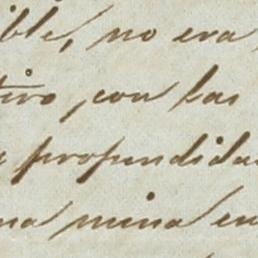 ible, no era
tivo, con las
a profundida
na mina en